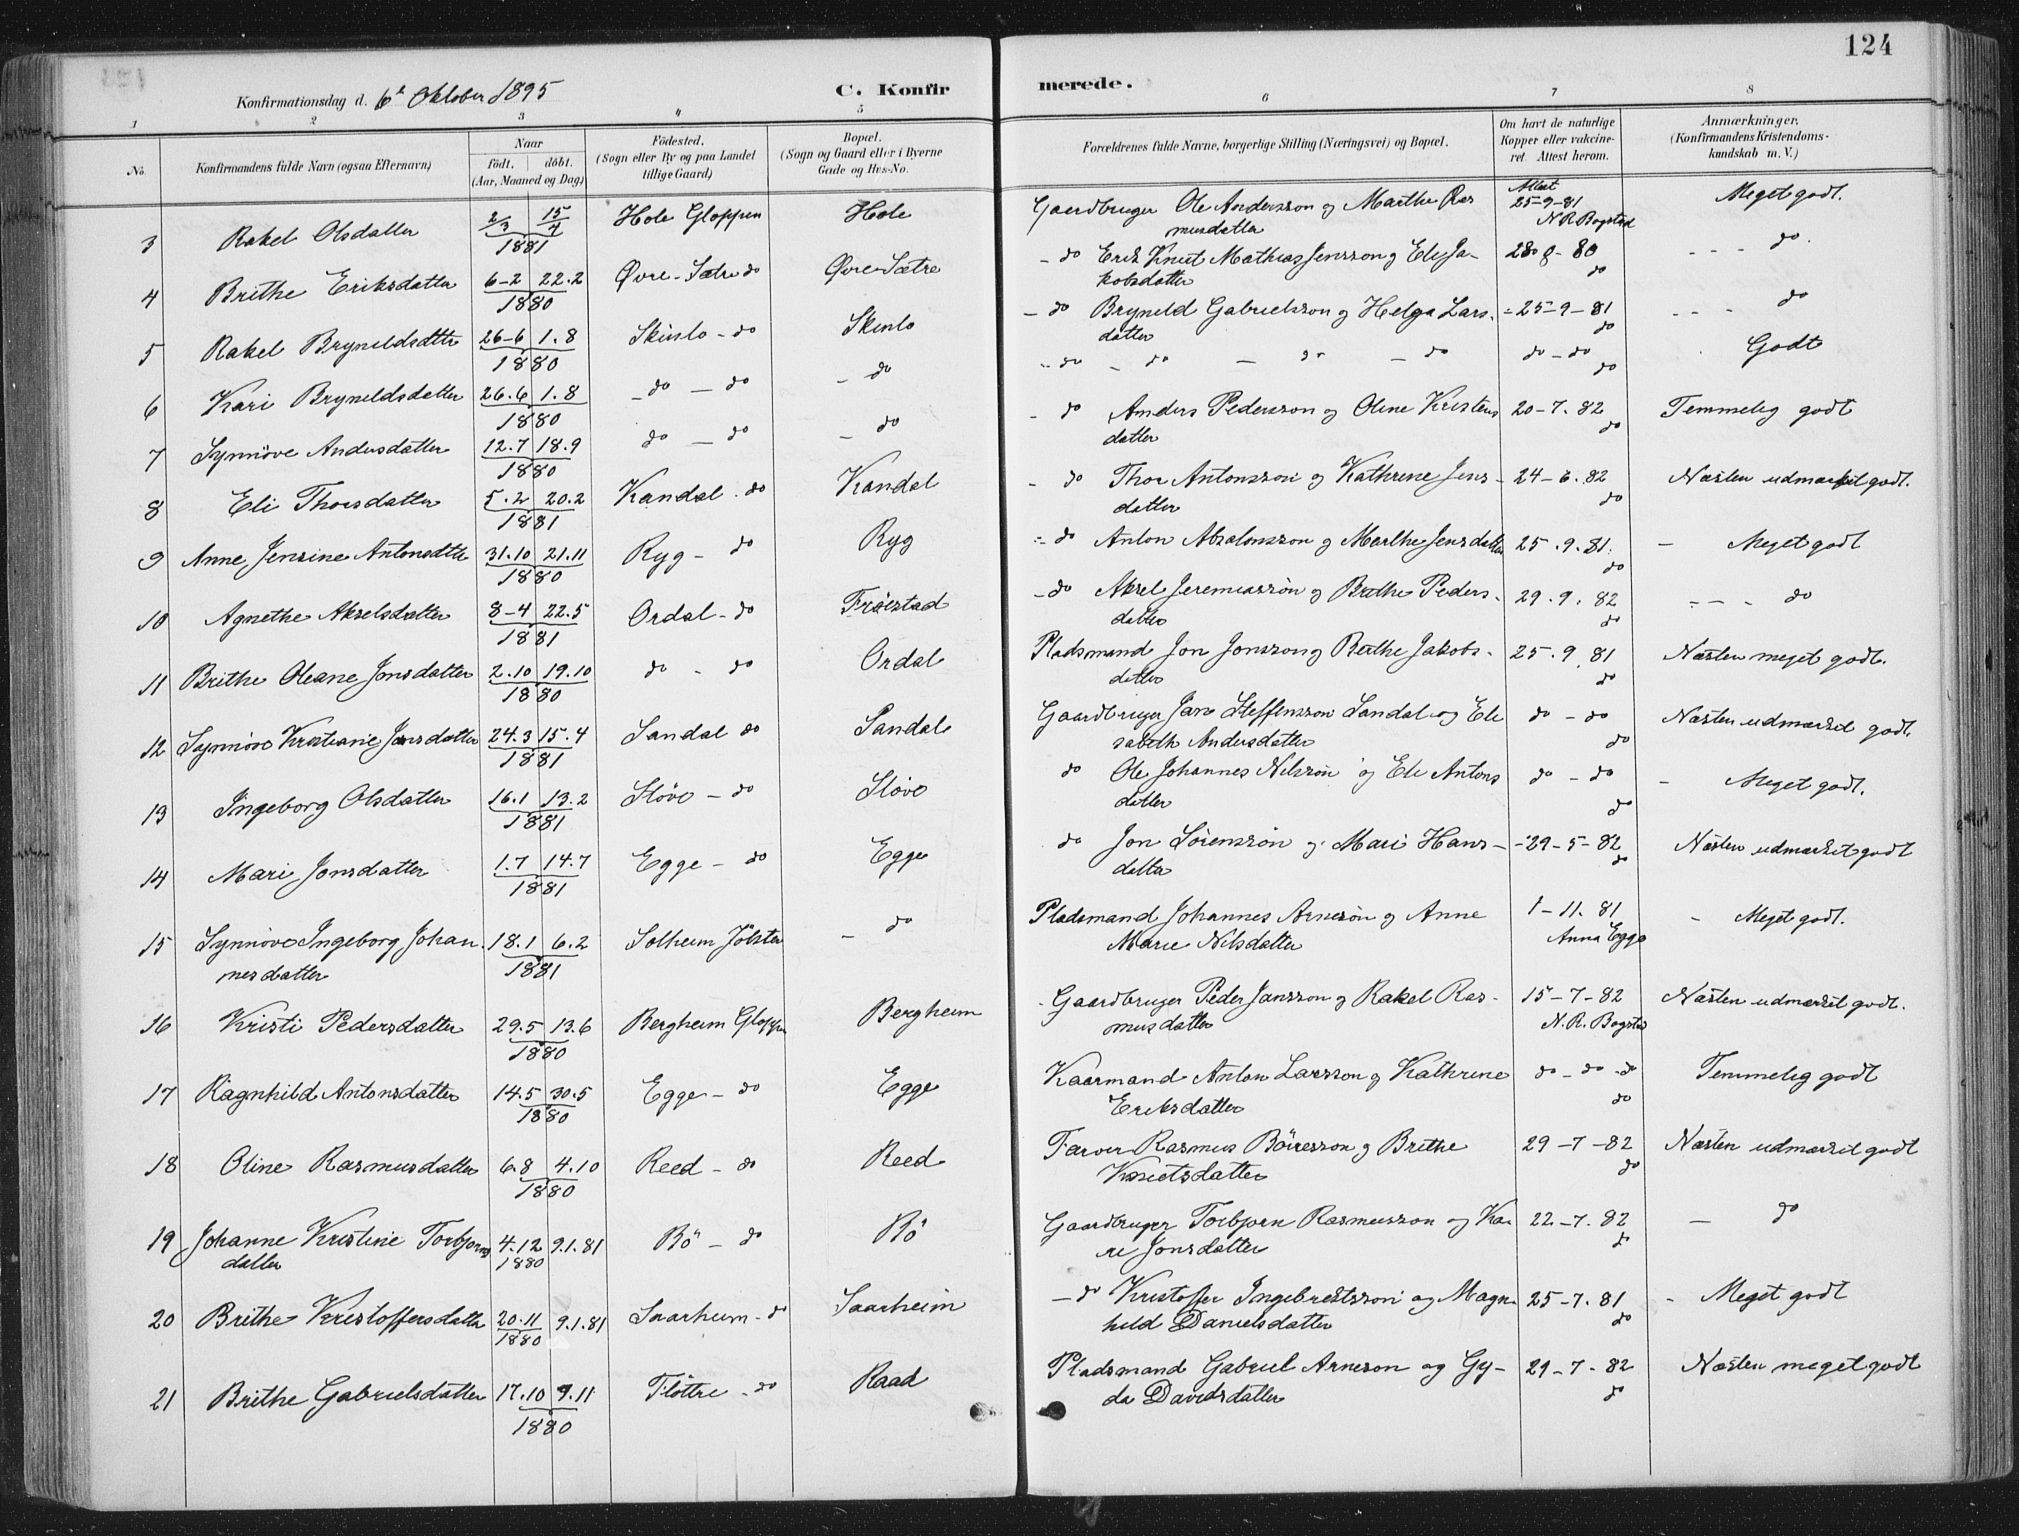 124
Konfirmationsdag d. 6t Oktober 1895
C. Konfirmerede.
1 2 3 4 5 6 7 8
No.
Konfirmandens fulde Navn (ogsaa Efternavn)
Naar
födt. döbt.
(Aar, Maaned og Dag)
Födested.
(Sogn eller By og paa Landet
tillige Gaard)
Bopæl.
(Sogn og Gaard eller i Byerne
Gade og Hus-No.
Forældrenes fulde Navne, borgerlige Stilling (Næringsvei) og Bopæl.
Om havt de naturlige
Kopper eller vakcine-
ret. Attest herom.
Anmærkninger.
(Konfirmandens Kristendoms-
kundskab m. V.)
3 Rakel Olsdatter 2/3 15/4 1881 Hole Gloppen Hole Gaardbruger Ole Andersson og Marthe Ras
musdatter Attest 25-9-81 N.R. Bogstad Meget godt.
4 Brithe Eriksdatter 6-2 22.2 1880 Øvre-Sætre do Øvre-Sætre - do Erik Knut Mathias Jensson og Eli Ja-
kobsdatter 80 do - - - do.
5 Rakel Bryneldsdttr 26-6 1.8 1880 Skinlo - do Skinlo - do Bryneld Gabrielsson og Helga Lars-
datter 25-9-81 do - - - do
6 Kari Bryneldsdatter 26.6 1.8 1880 - do - do - do - do - do - do - do do - do do Godt
7 Synnöve Andersdatter 12.7 18.9 1880 do - do - do - do Anders Pedersson og Oline Kristens
datter 20-7.82 do Temmelig godt
8 Eli Thorsdatter 5.2 20.2 1881 Kandal - do Kandal - do Thor Antonsson og Kathrine Jens-
datter 24-6.82 do Næsten udmærket godt.
9 Anne Jensine Antonsdttr 31.10 21.11 1880 Ryg - do Ryg - do Anton Absalonsson og Marthe Jensdatter 25.9.81. do - Meget godt
10 Agnethe Akselsdatter 8-4 22.5 1881 Ordal - do Fröestad - do Aksel Jeremiassön og Brithe Peders-
datter 29.9.82 do - - - do
11 Brithe Oleane Jonsdatter 2.10 19.10 1880 do - do Ordal Pladsmand Jon Jonsson og Brithe Jakobs-
datter 25.9.81 do Næsten meget godt.
12 Synnöve Kristiane Jansdatter 24.3 15.4 1881 Sandal do Sandal Gaardbruger Jan Steffensson Sandal og Eli
sabeth Andersdatter do - do do Næsten udmærket godt.
13 Ingeborg Olsdatter 16.1 13.2 1881 Støve - do Støve do Ole Johannes Nilsson og Eli Antons
datter do - do do - Meget godt.
14 Mari Jonsdatter 1.7 14.7 1881 Egge - do Egge do Jon Sörensson og Mari Hans-
datter 29-5-82 do Næsten udmærket godt
15 Synnöve Ingeborg Johan-
nesdatter 18.1 6.2 1881 Solheim Jölster - do Pladsmand Johannes Arnesön og Anne
Marie Nilsdatter 1-11.81 Anna Egge - Meget godt.
16 Kristi Pedersdatter 29.5 13.6 1880 Bergheim Gloppen Bergheim Gaardbruger Peder Jansson og Rakel Ras-
musdatter 15-7-82 N.R. Bogstad Næsten udmærket godt.
17 Ragnhild Antonsdatter 14.5 30.5 1880 Egge - do Egge Kaarmand Anton Larsson og Kathrine
Eriksdatter do - do - do do Temmelig godt
18 Oline Rasmusdatter 6.8 4.10 1880 Reed - do Reed Farver Rasmus Böiesson og Brithe
Knutsdatter 29-7-82 do Næsten udmærket godt
19 Johanne Kristine Torbjörns
datter 4.12 1880 9.1.81 Bö - do Bö Gaardbruger Torbjorn Rasmusson og Ka
ri Jonsdatter 22-7.82 do - do
20 Brithe Kristoffersdatter 20.11 1880 9.1.81 Saarheim - do Saarheim - do Kristoffer Ingebrektsson og Magn-
hild Danielsdatter 25-7.81 do - Meget godt
21 Brithe Gabrielsdatter 17.10 9.11 1880 Fløttre - do Raad Pladsmand Gabriel Arneson og Gy-
da Davidsdatter 29-7.82 do Næsten meget godt